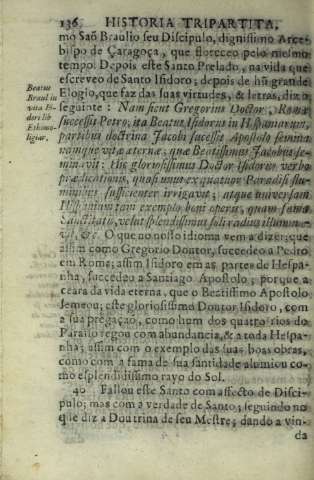 136. HISTORIA TRIPARTITA.
mo Saõ Braulio seu Discipulo, dignissimo Arce-
bispo de Çaragoça, que floreceo pelo mesmo
tempo. Depois este Santo Prelado, na vida que
escreveo de Santo Isidoro; depois de hũ grande
Elogio, que faz das suas virtudes, & letras, diz o
seguinte: Nam sicut Gregorius Doctor, Romæ
successit Petro; ita Beatus Isidorus in Hispaniarum
partibus doctrina Jacobi successit Apostolo semina
namque vitæ æternæ, quæ Beatissimus Jacobus se-
minavit: Hic gloriosissimus Doctor Isidorus verbo
prædicationis, quasi unus ex quatuor Paradisi flu-
minibus sufficienter irrigavit; atque universam
Hispaniam tam exemplo boni operis, quam fama
Sanctitatis, velut splendidissimus solis radius illumina-
vit, &c. O que no nosso idioma vem a dizer; que
assim como Gregorio Doutor, succedeo a Pedro
em Rome; assim Isidoro em as partes de Hespa-
nha, succedeo a Santiago Apostolo; porque a
ceara da vida eterna, que o Beatissimo Apostolo
semeou; este gloriosissimo Doutor Isidoro, com
a sua prègaçaõ, como hum dos quatro rios do
Paraiso regou com abundancia, & a toda Hespa-
nha; assim com o exemplo das suas boas obras,
como com a fama de sua santidade alumiou co-
mo esplendidissimo rayo do Sol.
40 Fallou este Santo com affecto de Disci-
pulo; mas com a verdade de Santo; seguindo no
que diz a Doutrina de seu Mestre; dando a vin-
da
Beatus
Braul in
vita Isi-
dori lib
Ethimo-
ligiar.